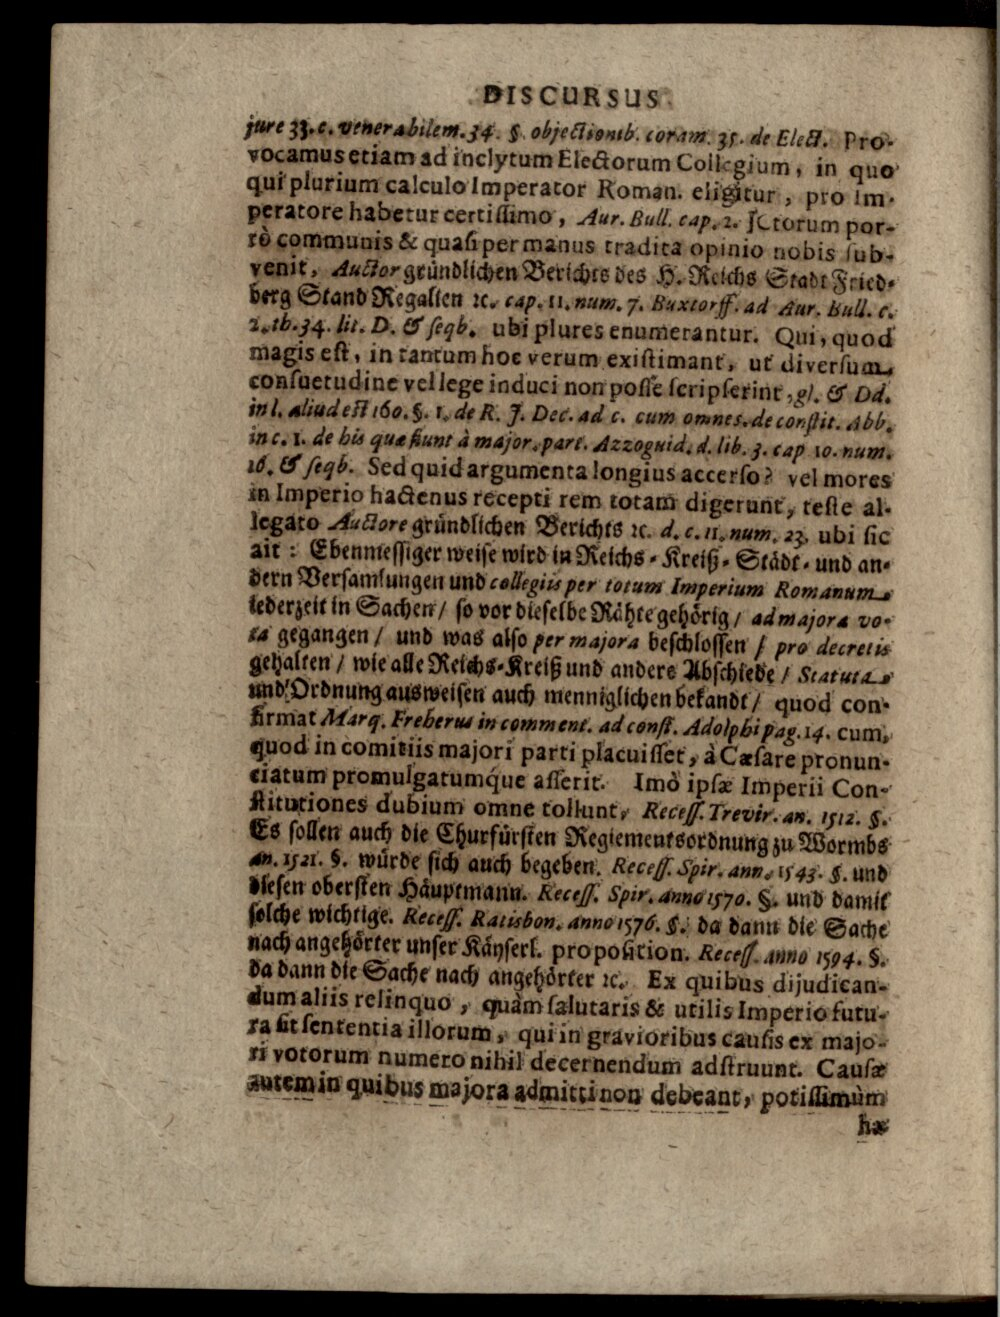 DISCURSUS
jure 33. c. venerabilem. 34. §. objectionib. coram. 35. de Elect. Pro-
vocamus etiam ad inclytum Electorum Collegium, in quo
qui plurium calculo Imperator Roman. eligitur, pro Im-
peratore habetur certissimo, Aur. Bull. cap. 2. JCtorum por-
rò communis & quasi per manus tradita opinio nobis sub-
venit, Auctor gründlichen Berichts des H. Reichs Stadt Fried-
berg Stand Regalien ꝛc. cap. 11. num. 7. Buxtorff. ad Aur. Bull. c.
2. th. 34. lit. D. & seqb. ubi plures enumerantur. Qui, quod
magis est, in tantum hoc verum existimant, ut diversum
consuetudine vel lege induci non posse scripserint, gl. & Dd.
in l. aliud est 160. §. 1. de R. J. Dec. ad c. cum omnes. de constit. Abb.
in c. 1. de his quæ fiunt à major. part. Azzoguid. d. lib. 3. cap 10. num.
16. & seqb. Sed quid argumenta longius accerso? vel mores
in Imperio hactenus recepti rem totam digerunt, teste al-
legato Auctore gründlichen Berichts ꝛc. d. c. 11. num. 23. ubi sic
ait: Ebenmessiger weise wird in Reichs-Kreiß-Städt-und an-
dern Versamlungen und collegiis per totum Imperium Romanum
iederzeit in Sachen/ so vor dieselbe Rähte gehörig/ ad majora vo-
ta gegangen/ und was also per majora beschlossen/ pro decretis
gehalten/ wie alle Reichs-Kreiß und andere Abschiede/ Statuta
und Ordnung ausweisen auch menniglichen bekandt/ quod con-
firmat Marq. Freherus in comment. ad const. Adolphi pag. 14. cum,
quod in comitiis majori parti placuisset, à Cæsare pronun-
ciatum promulgatumque asserit. Imò ipsæ Imperii Con-
stitutiones dubium omne tollunt, Recess. Trevir. an. 1512. §.
Es sollen auch die Churfürsten Regiementsordnung zu Wormbs
an. 1521. §. würde sich auch begeben. Recess. Spir. ann. 1543. §. und
diesen obersten Häuptmann. Recess. Spir. anno 1570. §. und damit
solche wichtige. Recess. Ratisbon. anno 1576. §. da dann die Sache
nach angehörter unser Käyserl. proposition. Recess. anno 1594. §.
da dann die Sache nach angehörter ꝛc. Ex quibus dijudican-
dum aliis relinquo, quàm salutaris & utilis Imperio futu-
ra sit sententia illorum, qui in gravioribus causis ex majo-
ri votorum numero nihil decernendum adstruunt. Causæ
autem in quibus majora admitti non debeant, potissimùm
hæ